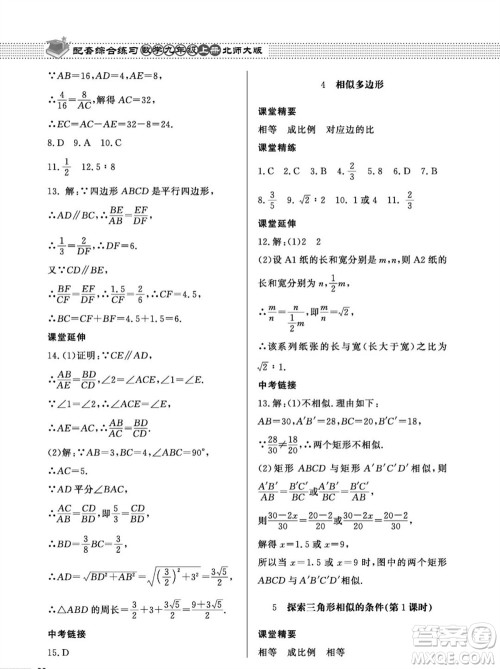 配套综合练习 数学九年级上册 北师大版
∵AB=16，AD=8，
∴4/16=8/AC，解得 AC=32，
∴EC=AC−AE=32−4=28.
8.D 9.A 10.C
11.1/2 12.5∶8
13.解：∵四边形 ABCD 是平行四边形，
∴AD∥BC，∴BE/DF=EF/DF，
∴1/3=2/DF，∴DF=6.
又∵CD∥BE，
∴BF/FD=EF/CF，∴1.5/CF=2/6，∴CF=4.5，
∴BC=BF+CF=1.5+4.5=6.
课堂延伸
14.(1)证明：∵CE∥AD，
∴AB/AE=BD/DC，∠2=∠ACE，∠1=∠E.
∵∠1=∠2，∴∠ACE=∠E，
∴AE=AC，∴AB/AC=BD/DC.
(2)解：∵AB=3，BC=4，∠ABC=90°，
∴AC=5.
∵AD 平分∠BAC，∴AC/AB=CD/BD，
∴5/3=CD/BD，
∴BD=3/8 BC=3/2，
∴AD=√(BD²+AB²)=√((3/2)²+3²)=3√5/2，
∴△ABD 的周长=3/2+3+3√5/2=(9+3√5)/2.
中考链接
15.D
4 相似多边形
课堂精要
相等 成比例 对应边的比
课堂精练
1.C 2.A 3.A 4.2/3 5.D 6.A 7.D
8.3/5 9.√2∶1 10.A 11.A
课堂延伸
12.解：(1)2 2
(2)设 A1 纸的长和宽分别是 m，n，则 A2 纸的长和宽分别是 n，1/2 m，
∴m/n=n/(1/2 m)，即 m/n=√2，
∴该系列纸张的长(大于宽)与宽之比为√2∶1.
中考链接
13.解：(1)不相似.理由如下：
AB=30，A′B′=28，BC=20，B′C′=18.
∵28/30≠18/20，∴两个矩形不相似.
(2)矩形 ABCD 与 A′B′C′D′相似，则
A′B′/AB=B′C′/BC或A′B′/BC=B′C′/AB，
则(30−2x)/30=(20−2)/20或(30−2x)/20=(20−2)/30，
解得 x=1.5 或 x=9，
∴当 x=1.5 或 x=9 时，图中的两个矩形 ABCD 与 A′B′C′D′相似.
5 探索三角形相似的条件(第1课时)
课堂精要
相等 相等